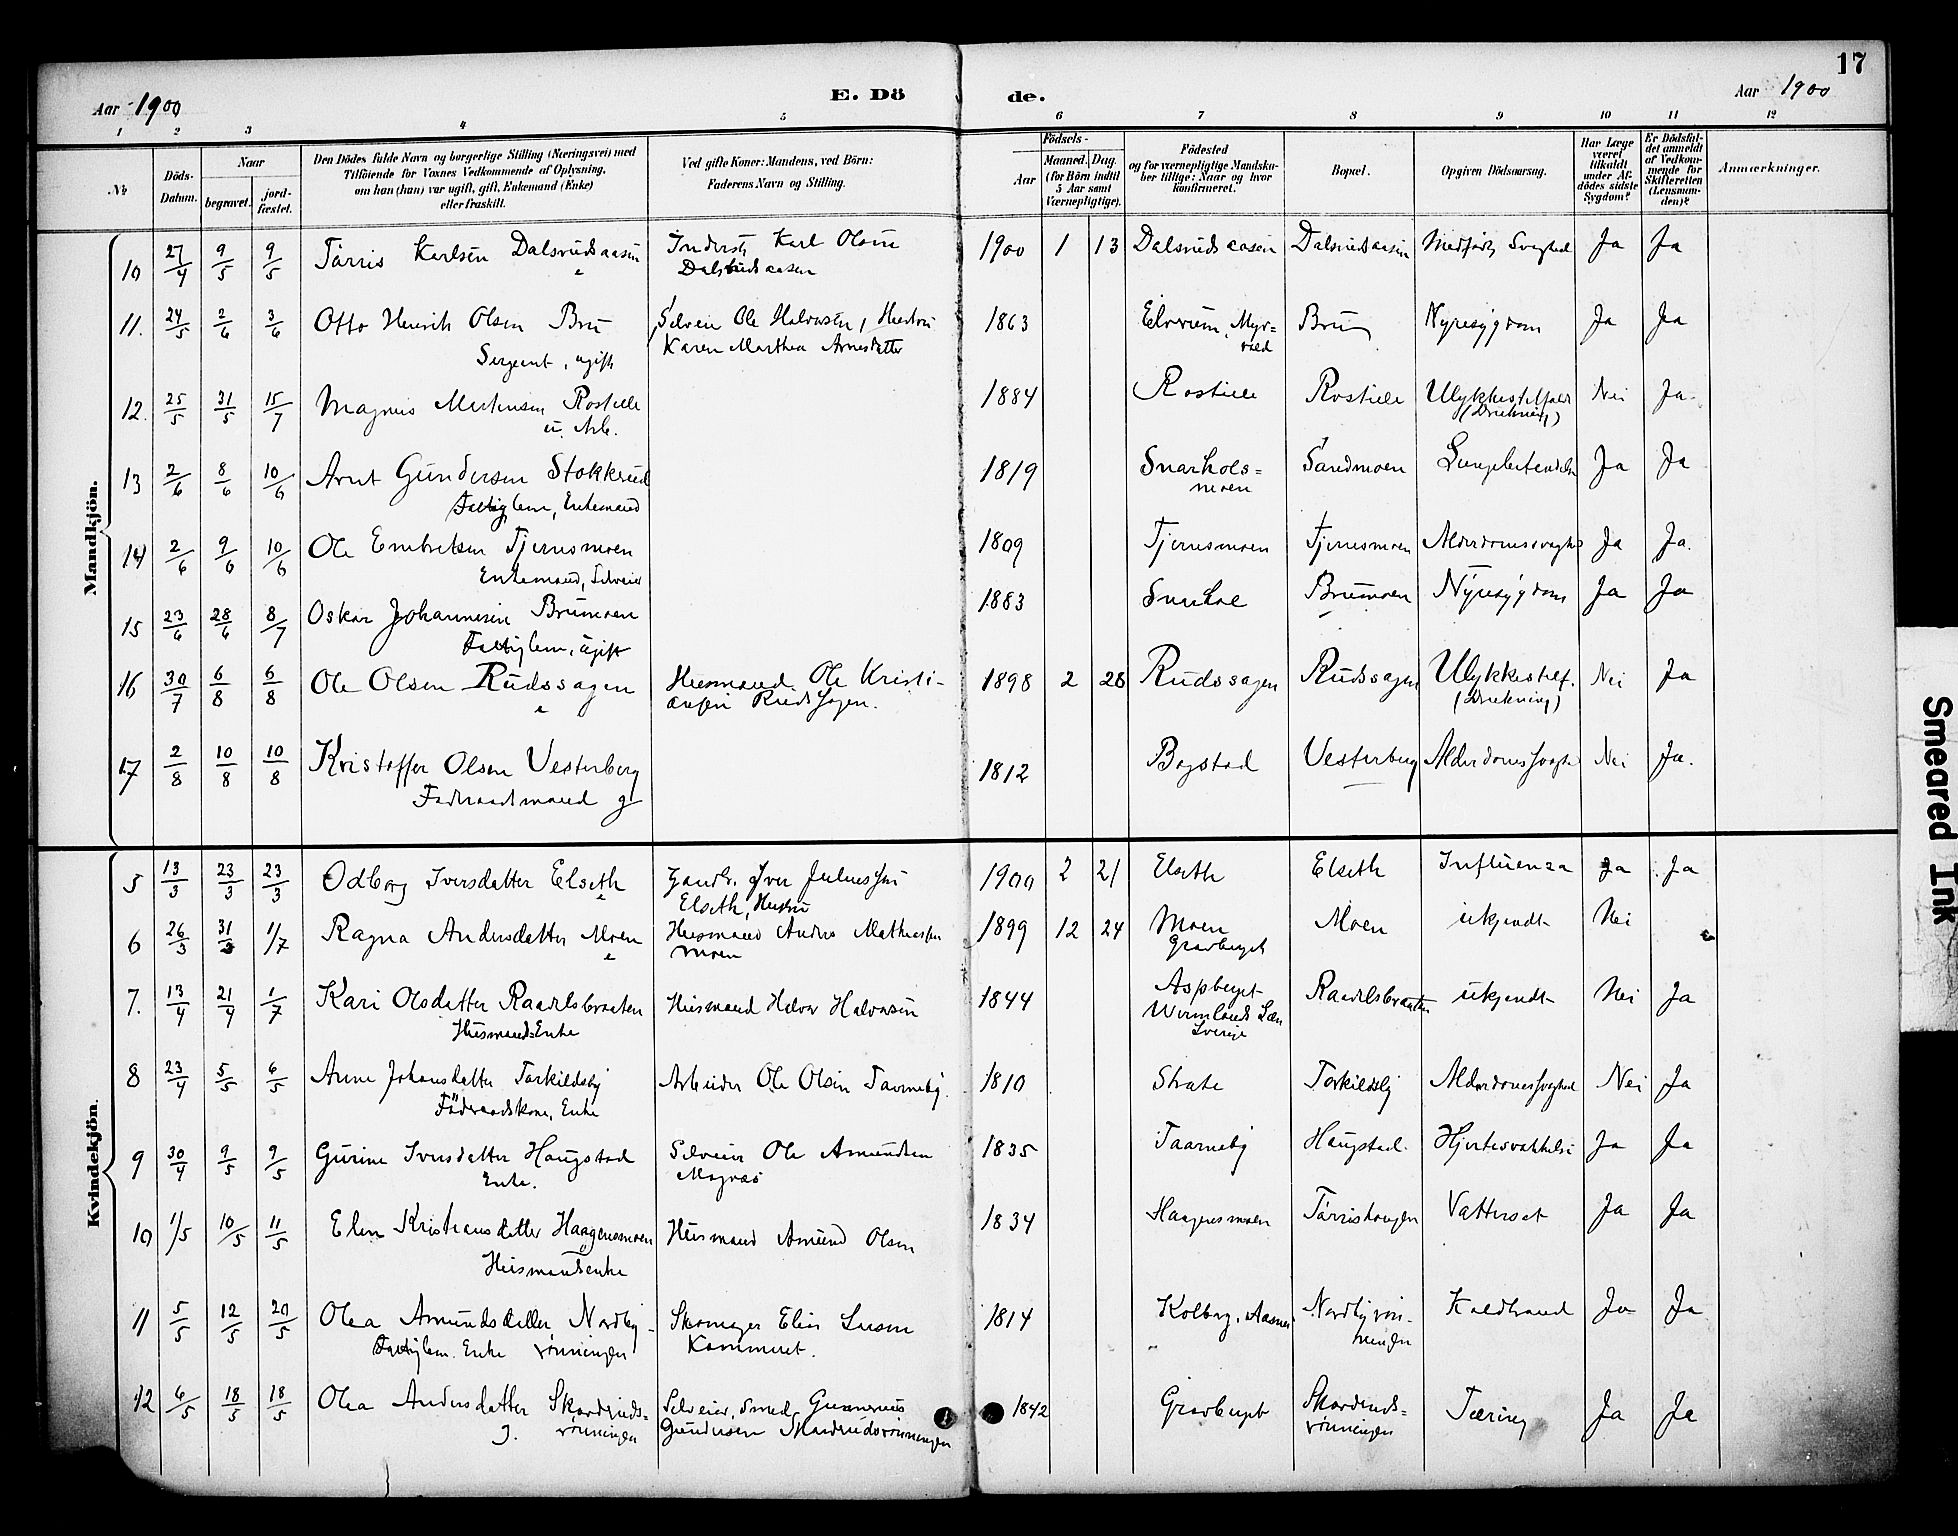 17
Aar 1900 E. Dö de. Aar 1900
1 2 3 4 5 6 7 8 9 10 11 12
No
Döds-Datum.
Naar
begravet. jord-fæstet.
Den Dödes fulde Navn og borgerlige Stilling (Næringsvei) med
Tilföiende for Voxnes Vedkommende af Oplysning,
om han (hun) var ugift, gift, Enkemand (Enke)
eller fraskilt.
Ved gifte Koner: Mandens, ved Börn:
Faderens Navn og Stilling.
Födsels-
Aar Maaned. Dag.
(for Börn indtil
5 Aar samt
Værnepligtige).
Födested
og for værnepligtige Mandska-
ber tillige: Naar og hvor
konfirmeret.
Bopæl.
Opgiven Dödsaarsag.
Har Læge
været
tilkaldt
under Af-
dödes sidste
Sygdom?
Er Dödsfal-
det anmeldt
af Vedkom-
mende for
Skifteretten
(Lensman-
den)?
Anmærkninger.
Mandkjön.
10 27/4 9/5 9/5 Tårris Karlsen Dalsrudsaasen Inderst Karl Olsen 1900 1 13 Dalsrudsaasen Dalsrudsaasen Medfødt Svaghed Ja Ja
Dalsrudsaasen
11. 24/5 2/6 3/6 Otto Henrik Olsen Bru Selveier Ole Halvorsen, Hustru 1863 Elverum, Myr- Bru Nyresygdom Ja Ja
Sergeant, ugift Karen Marthea Arnesdatter
12. 25/5 31/5 15/7 Magnus Mortensen Rostille 1884 Rostille Rostille Ulykkestilfælde Nei Ja
u. Arb. (Drukning)
13 2/6 8/6 10/6 Arnt Gundersen Stokkrud 1819 Snarhols- Sandmoen Lungebetændelse Ja Ja
Fattiglem, Enkemand moen
14 2/6 9/6 10/6 Ole Embretsen Tjernsmoen 1809 Tjernsmoen Tjernsmoen Alderdomssvaghed Ja Ja.
Enkemand, Selveier
15 23/6 28/6 8/7 Oskar Johannesen Brumoen 1883 Snarhol Brumoen Nyresygdom Ja Ja
Fattiglem, ugift
16 30/7 6/8 6/8 Ole Olsen Rudssagen Husmand Ole Kristi- 1898 2 28 Rudssagen Rudssagen Ulykkestilf. Nei Ja
ansen Rudssagen. (Drukning)
17 2/8 10/8 10/8 Kristoffer Olsen Vesterberg 1812 Bogstad Vesterberg Alderdomssvaghed Nei Ja.
Föderaadsmand g
Kvindekjön.
5 13/3 23/3 23/3 Odborg Iversdatter Elseth Gaardb. Iver Juliussen 1900 2 21 Elseth Elseth Influenza Ja Ja
Elseth, Hustru
6 26/3 31/3 1/7 Ragna Andersdatter Moen Husmand Anders Mathiassen 1899 12 24 Moen Moen ukjendt Nei
Moen Gravberget
7. 13/4 21/4 1/7 Kari Olsdatter Raadelsbraaten Husmand Halvor Halvorsen 1844 Aspberget Raadelsbraaten ukjendt Nei Ja
Husmands Enke Wermlands Læn
Sverige
8 23/4 5/5 6/5 Anne Johansdatter Torkildsby Arbeider Ole Olsen Taarneby. 1810 Strate Torkildsby Alderdomssvaghed Nei Ja
Föderaadskone, Enke
9 30/4 9/5 9/5 Gurine Iversdatter Haugstad Selveier Ole Amundsen 1835 Taarneby Haugstad. Hjertesvækkelse Ja Ja
Enke.
10 1/5 10/5 11/5 Elen Kristiansdatter Haagensmoen Husmand Amund Olsen 1834 Haagensmoen Tårrishaugen Vattersot Ja Ja
Husmandsenke
11 5/5 12/5 20/5 Olea Amundsdatter Nordby- Skomager Elias Larsen 1814 Kolberg, Aasnes Nordbyrön- Koldbrand Ja Ja
Fattiglem. Enke rönningen Kammeret. ningen
12 6/5 18/5 18/5 Olea Andersdatter Skardruds- Selveier, Smed, Gunnerius 1842 Gravberget Skardruds- Tæring Ja Ja
g. rönningen Gundersen Skardrudsrönningen rönningen
Smeared Ink